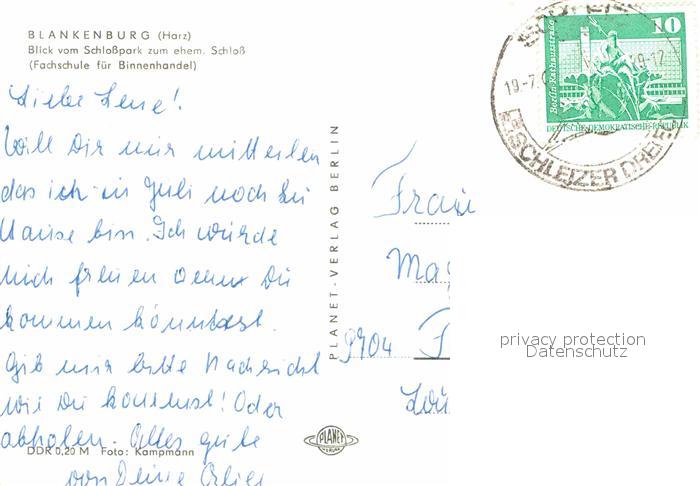 BLANKENBURG (Harz)
Blick vom Schloßpark zum ehem. Schloß
(Fachschule für Binnenhandel)
Liebe Lene!
Will Dir nur mitteilen
das ich in Juli noch zu
Hause bin. Ich würde
mich freuen wenn Du
kommen könntest.
Gib mir bitte Nachricht
wie Du kommst! Oder
abholen. Alles gute
von Deine
DDR 0,20 M Foto: Kampmann
PLANET-VERLAG BERLIN
PLANET
VERLAG
Frau
Ma
9704
10
Berlin-Rathausstraße
DEUTSCHE DEMOKRATISCHE REPUBLIK
19.-7.
-12
SCHLEIZER DREI
privacy protection
Datenschutz